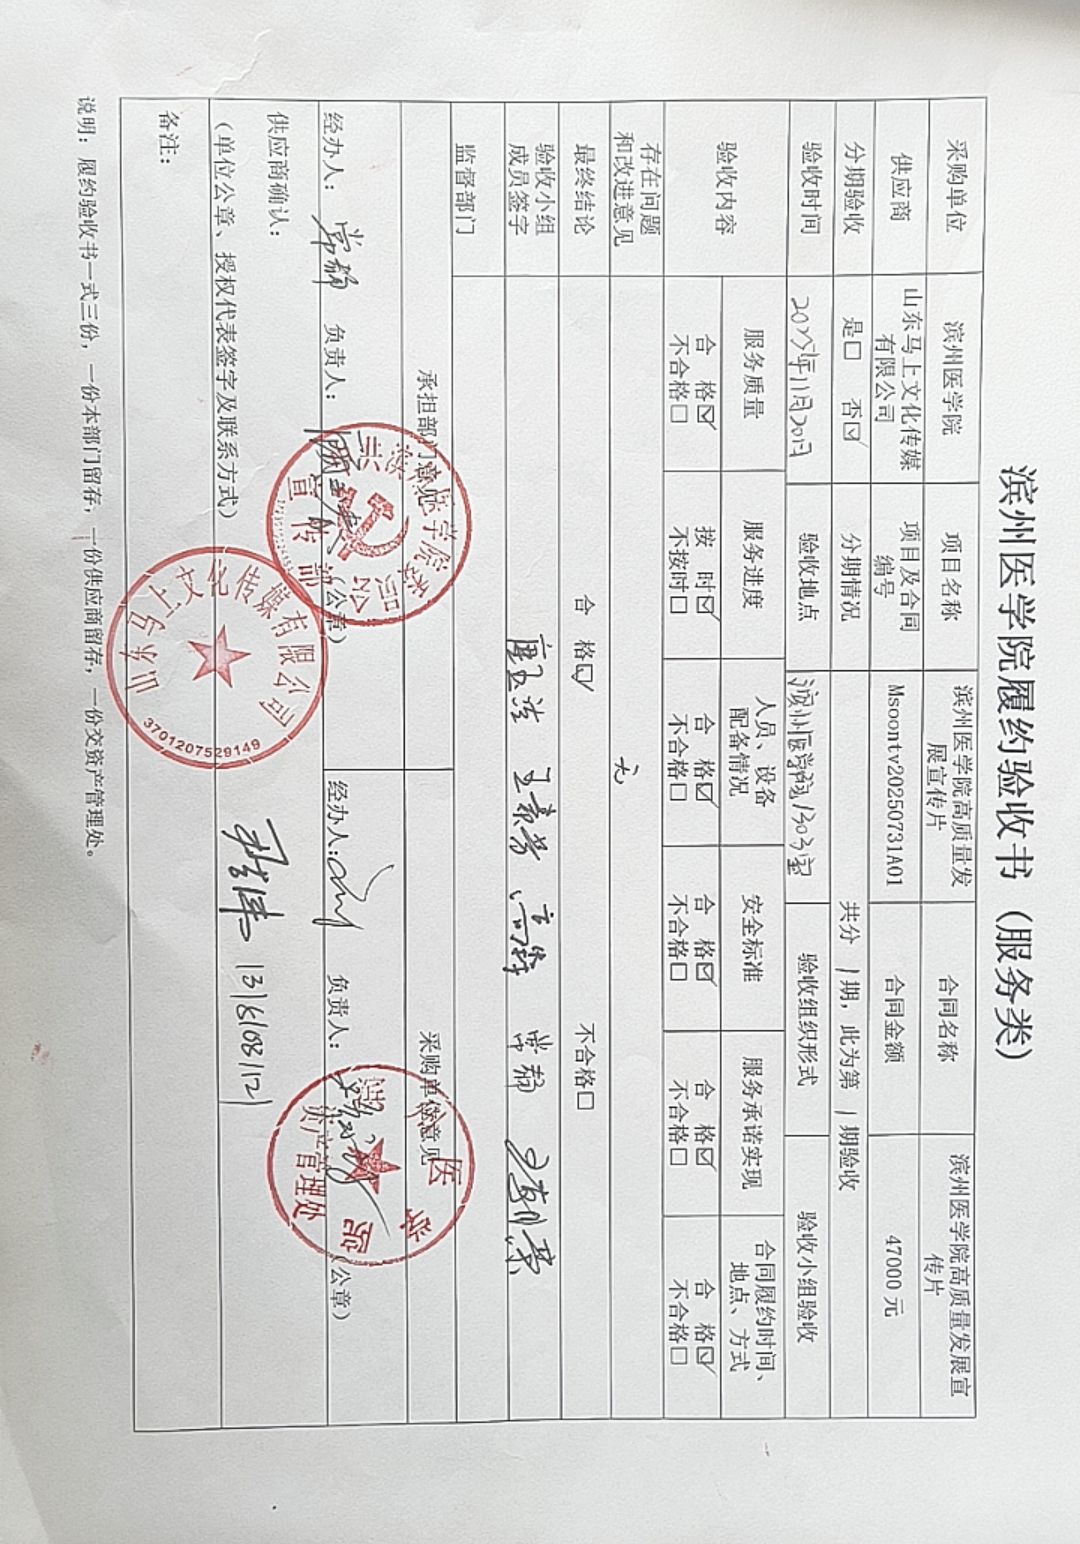 滨州医学院履约验收书（服务类）
采购单位 滨州医学院 项目名称 滨州医学院高质量发展宣传片 合同名称 滨州医学院高质量发展宣传片
供应商 山东马上文化传媒有限公司 项目及合同编号 Msoontv20250731A01 合同金额 47000 元
分期验收 是□ 否☑ 分期情况 共分 1 期，此为第 1 期验收
验收时间 2025年11月20日 验收地点 滨州医学院1303室 验收组织形式 验收小组验收
验收内容 服务质量 服务进度 人员、设备配备情况 安全标准 服务承诺实现 合同履约时间、地点、方式
合 格☑ 按 时☑ 合 格☑ 合 格☑ 合 格☑ 合 格☑
不合格□ 不按时□ 不合格□ 不合格□ 不合格□ 不合格□
存在问题和改进意见 无
最终结论 合 格☑ 不合格□
验收小组成员签字 常静
监督部门
承担部门意见 采购单位意见
经办人： 常静 负责人： （公章） 经办人： 负责人： （公章）
宣传部
滨州医学院
资产管理处
供应商确认：
（单位公章、授权代表签字及联系方式） 13161081121
山东马上文化传媒有限公司
3701207529149
备注：
说明：履约验收书一式三份，一份本部门留存，一份供应商留存，一份交资产管理处。